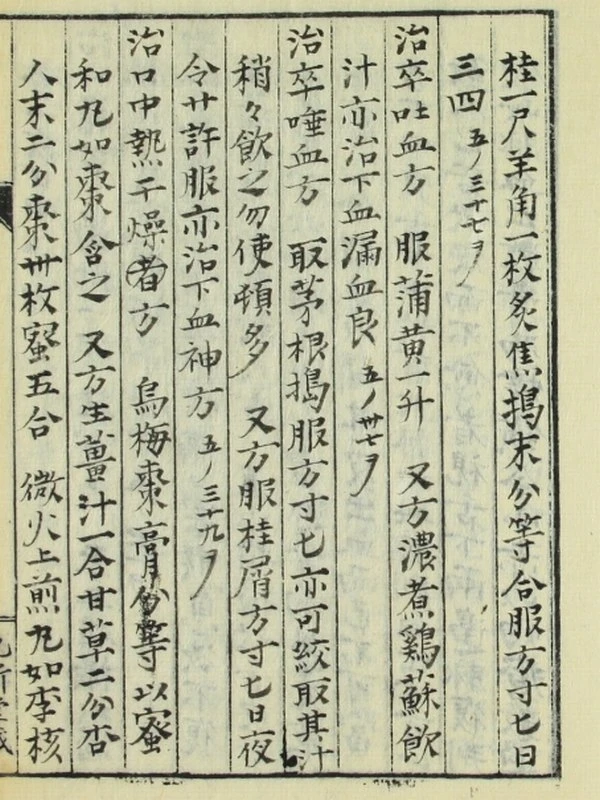 桂一尺羊角一枚炙焦搗末分等合服方寸匕日
三四 五ノ三十七ヲ
治卒吐血方 服蒲黄一升 又方濃煮鷄蘇飲
汁亦治下血漏血良 五ノ卅七ヲ
治卒唾血方 取茅根搗服方寸匕亦可絞取其汁
稍々飲之勿使頓多 又方服桂屑方寸匕日夜
令廿許服亦治下血神方 五ノ三十九ヲ
治口中熱干燥者方 烏梅棗膏份等以蜜
和丸如棗含之 又方生薑汁一合甘草二分杏
人末二分棗卅枚蜜五合 微火上煎丸如李核